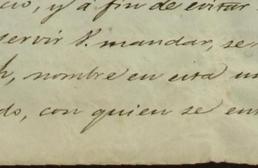 cio, y á fin de evitar
servir V. mandar, se
h, nombre en esta
do, con quien se en